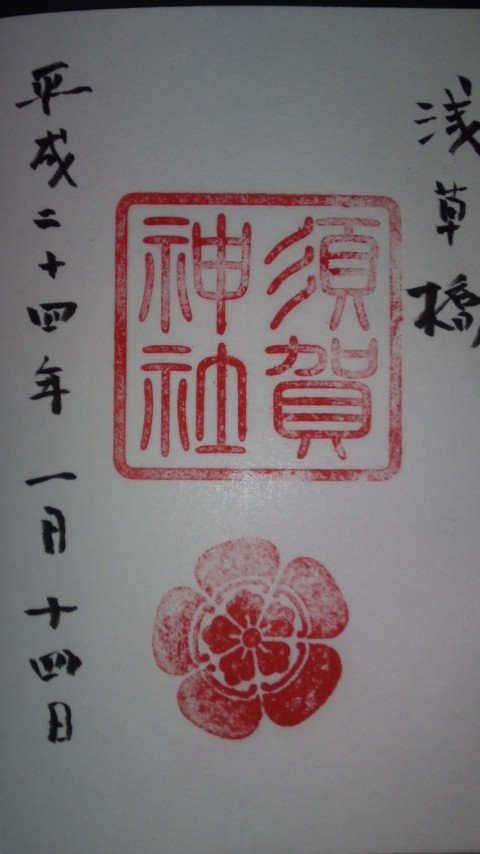 浅草橋
須賀
神社
平成二十四年 一月十四日